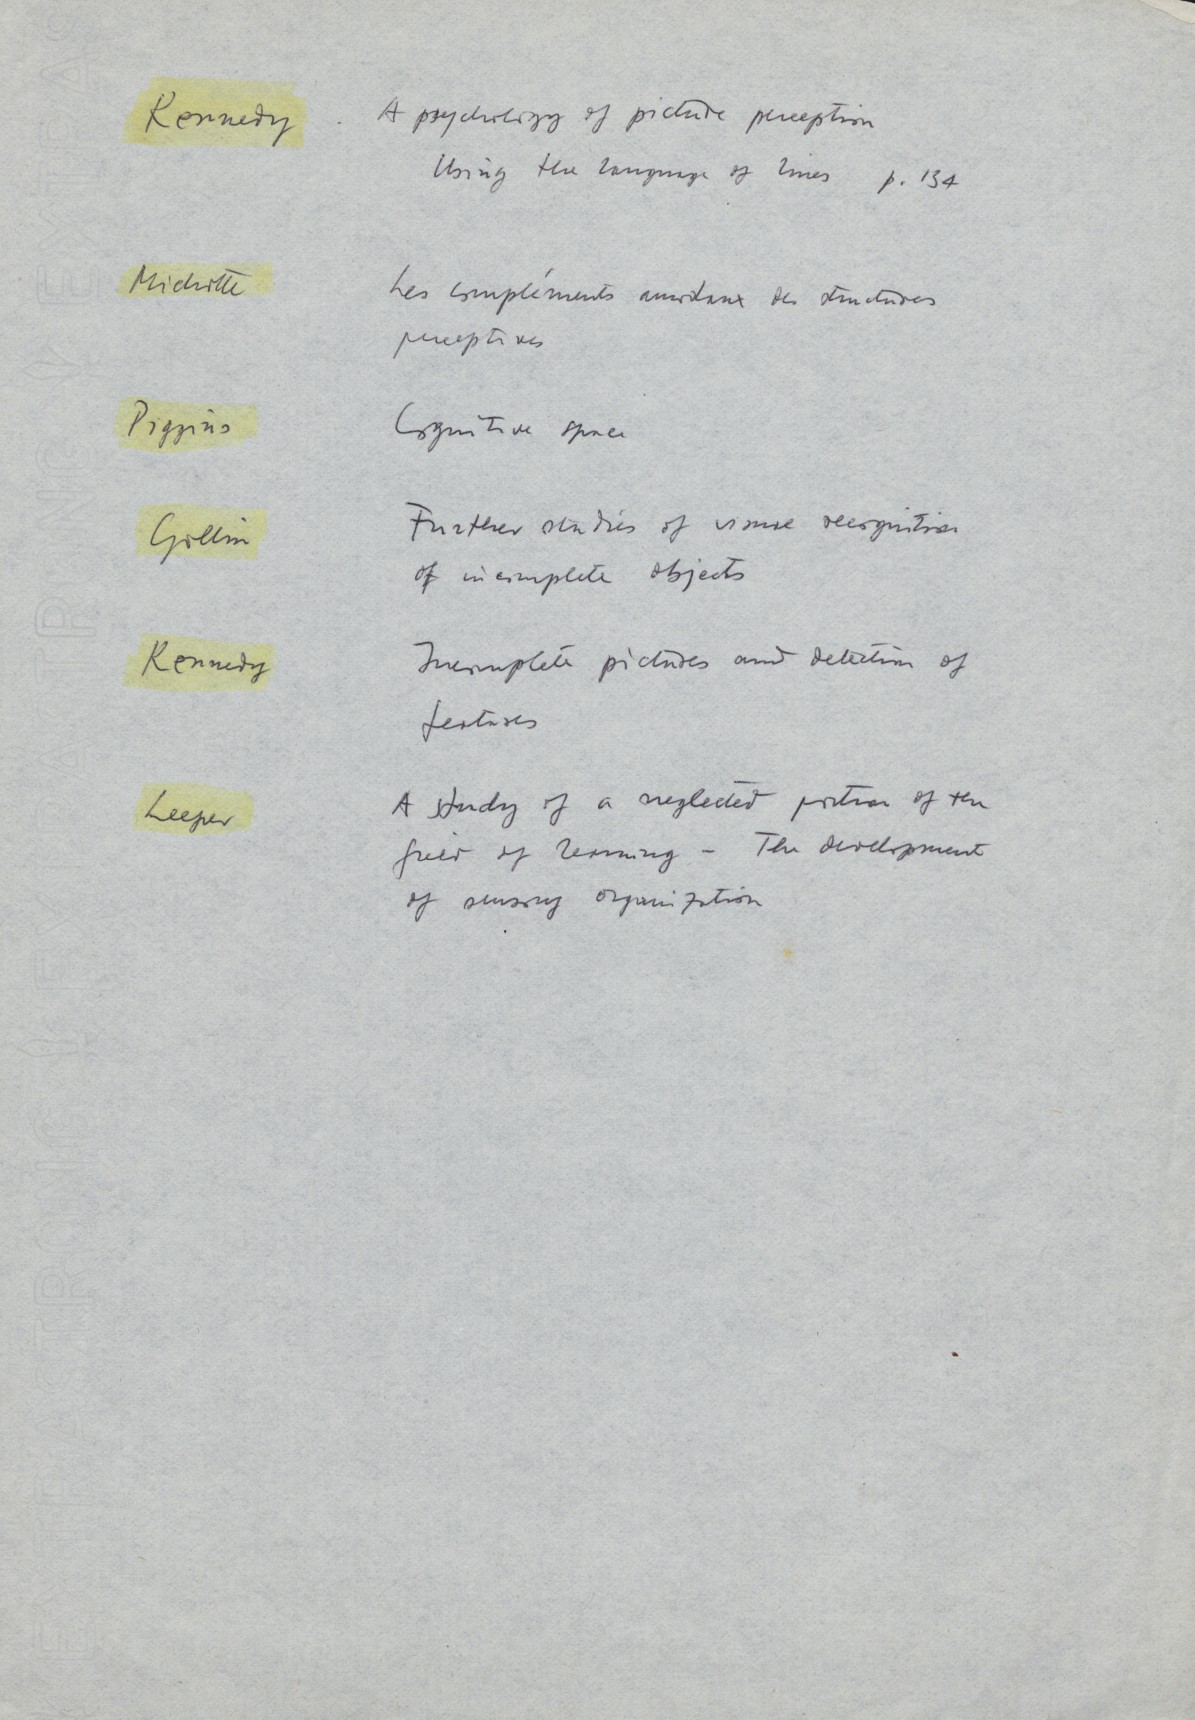 Kennedy . A psychology of picture perception
Using the language of lines p. 134
Michotte Les compléments amodaux des structures
perceptives
Piggins Cognitive space
Gollin Further studies of visual recognition
of incomplete objects
Kennedy Incomplete pictures and detection of
features
Leeper A study of a neglected portion of the
field of learning – The development
of sensory organization